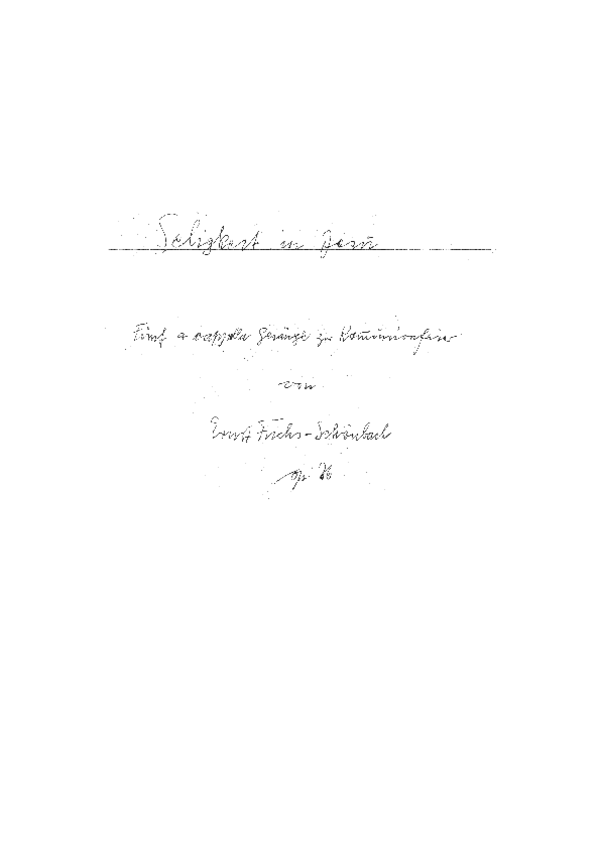 Seligkeit in Jesu
Fünf a cappella Gesänge zur Kommunionfeier
von
Ernst Fuchs-Schönbach
op.